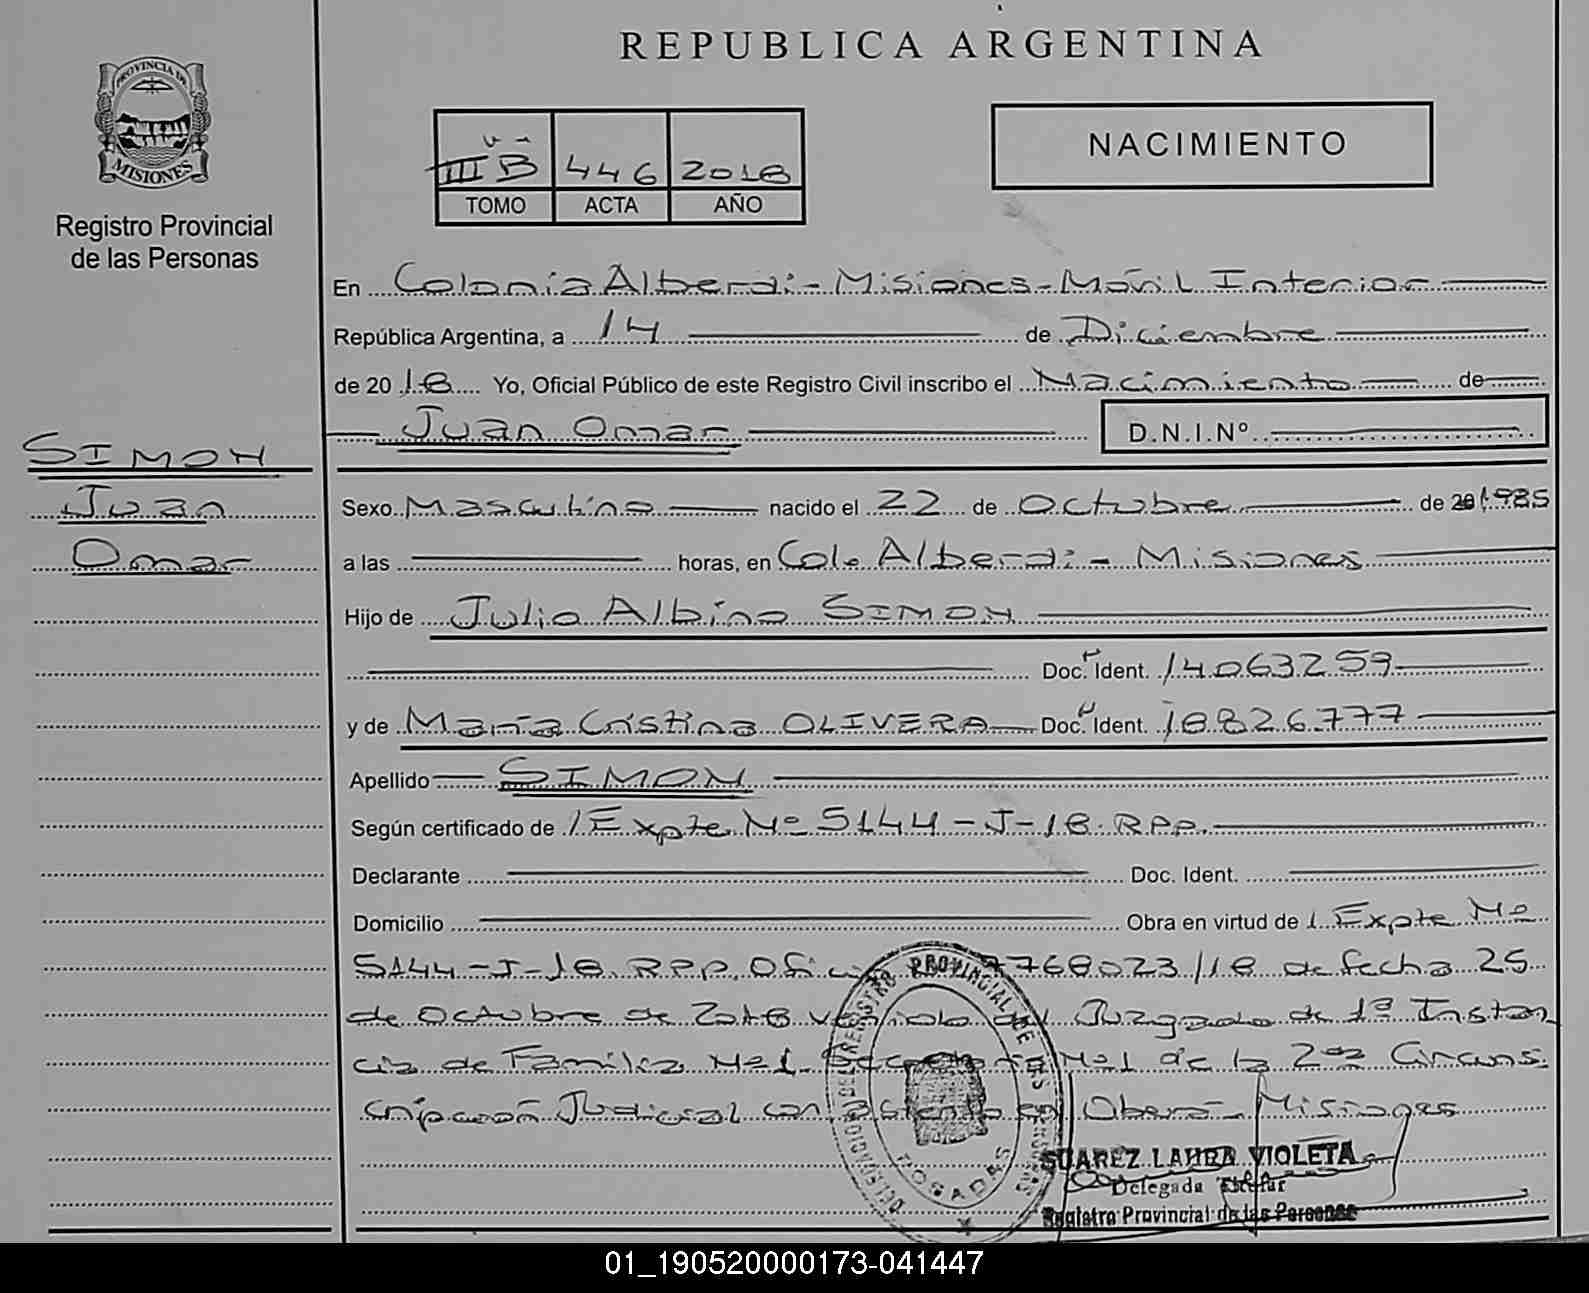 REPUBLICA ARGENTINA
PROVINCIA DE
MISIONES
Registro Provincial
de las Personas
III B 446 2018
TOMO ACTA AÑO
NACIMIENTO
En Colonia Alberdi - Misiones - Móvil Interior
República Argentina, a 14 de Diciembre
de 2018 Yo, Oficial Público de este Registro Civil inscribo el Nacimiento de
Juan Omar D.N.I.Nº
SIMON
Juan
Omar
Sexo Masculino nacido el 22 de Octubre de 1985
a las horas, en Col. Alberdi - Misiones
Hijo de Julio Albino SIMON
Doc. Ident. 14063259
y de María Cristina OLIVERA Doc. Ident. 18826777
Apellido SIMON
Según certificado de / Expte Nº 5144-J-18.RPP.
Declarante Doc. Ident.
Domicilio Obra en virtud de / Expte Nº
5144-J-18.RPP, Oficio 7768023/18 de fecha 25
de Octubre de 2018 venido del Juzgado de 1ª Instan
cia de Familia Nº1 Secretaria Nº1 de la 2da Circuns
cripción Judicial con asiento en Oberá - Misiones
REGISTRO PROVINCIAL DE LAS PERSONAS
POSADAS
SUAREZ LAURA VIOLETA
Delegada Titular
Registro Provincial de las Personas
01_190520000173-041447